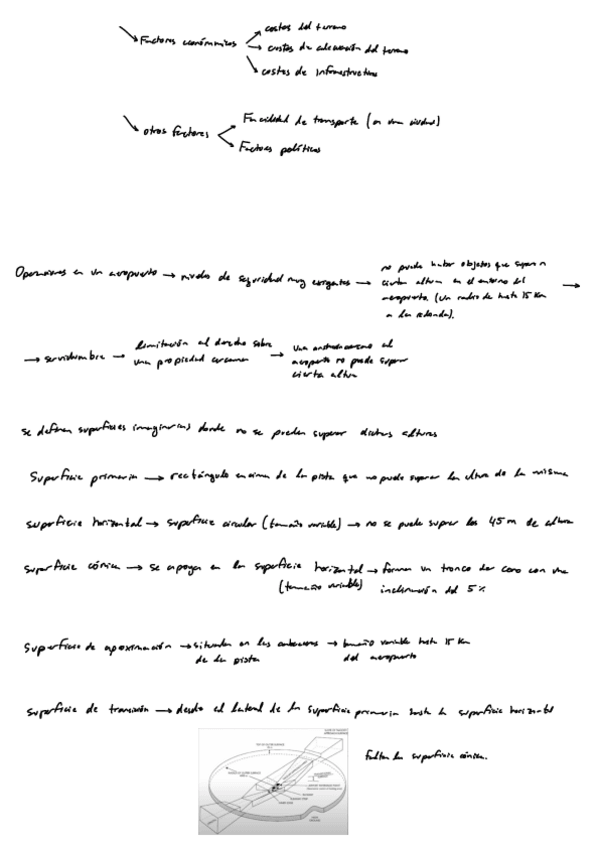 costos del terreno
Factores económicos
costos de adecuación del terreno
costos de infraestructura
Facilidad de transporte (en una ciudad)
otros factores
Factores políticos
Operaciones en un aeropuerto → niveles de seguridad muy exigentes → no puede haber objetos que superen
cierta altura en el entorno del
aeropuerto. (Un radio de hasta 15 Km
a la redonda). →
→ servidumbre → limitación al derecho sobre
una propiedad cercana → una cercano al
aeropuerto no puede superar
cierta altura
Se definen superficies imaginarias donde no se pueden superar dichas alturas
Superficie primaria → rectángulo encima de la pista que no puede superar la altura de la misma
Superficie horizontal → superficie circular (tamaño variable) → no se puede superar los 45 m de altura
Superficie cónica → se apoya en la superficie horizontal → forman un tronco de cono con una
(tamaño variable) inclinación del 5%
Superficie de aproximación → situadas en las
de la pista → tamaño variable hasta 15 Km
del aeropuerto
Superficie de transición → desde el lateral de la superficie primaria hasta la superficie horizontal
Falta la superficie cónica.